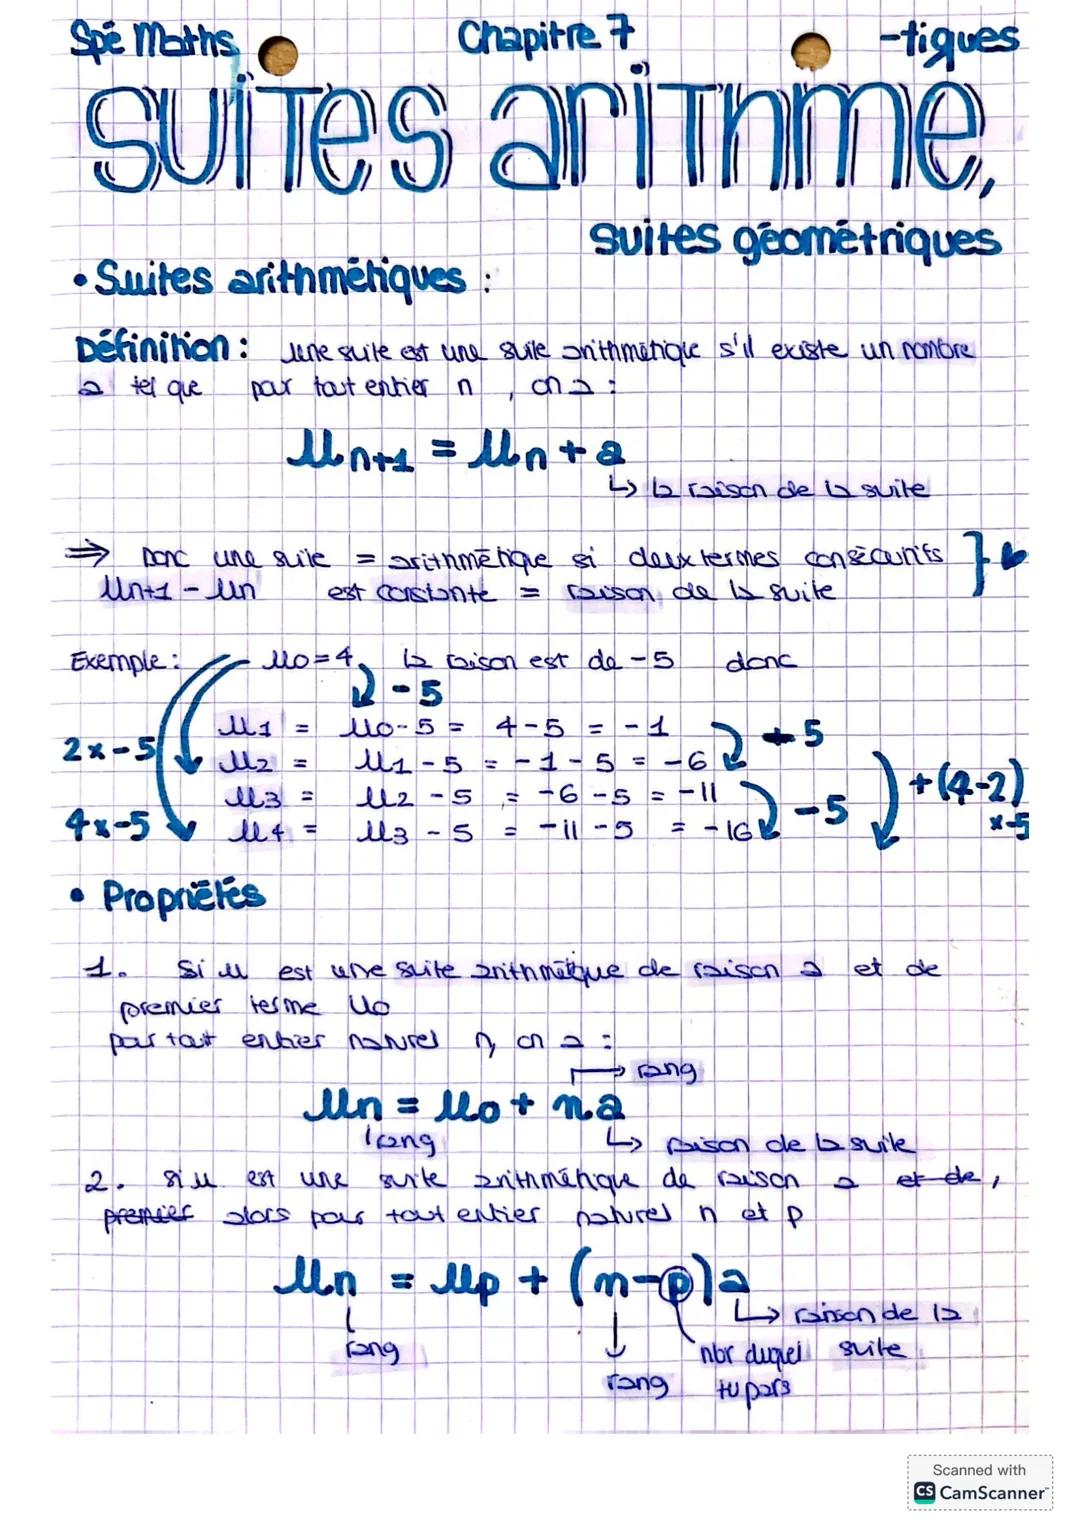 Spé Maths
Chapitre 7
-tiques
suites arithmé,
suites géométriques
• Suites arithmétiques :
Définition : Une suite est une suite arithmétique s'il existe un nombre
a tel que pour tout entier n, on a :
Un+1 = Un + a
↳ la raison de la suite
⇒ Donc une suite = arithmétique si deux termes consécutifs
Un+1 - Un est constante = raison de la suite
Exemple : U0=4, la raison est de -5 donc
-5
U1 = U0-5 = 4-5 = -1
+5
2x-5
U2 = U1-5 = -1-5 = -6
U3 = U2-5 = -6-5 = -11
-5
+(4-2)
x-5
4x-5
U4 = U3-5 = -11-5 = -16
• Propriétés
1. Si u est une suite arithmétique de raison a et de
premier terme U0
pour tout entier naturel n, on a :
rang
Un = U0 + n.a
rang
↳ raison de la suite
2. si u est une suite arithmétique de raison a et de,
premier alors pour tout entier naturel n et p
Un = Up + (n-p)a
↳ raison de la
suite
rang
rang
nbr duquel
tu pars
Scanned with
CS CamScanner